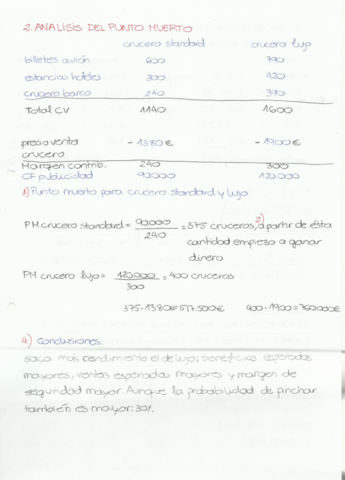 2. ANALISIS DEL PUNTO MUERTO
crucero standard crucero lujo
billetes avión 600 790
estancias hoteles 300 420
crucero barco 240 390
Total CV 1140 1600
precio venta - 1380€ - 1900€
crucero
Margen contrib. 240 300
CF publicidad 90.000 120.000
1) Punto muerto para crucero standard y lujo
PM crucero standard = 90.000 / 240 = 375 cruceros, 2) a partir de ésta
cantidad empieza a ganar
dinero
PM crucero lujo = 120.000 / 300 = 400 cruceros
375·1380= 517.500€ 400·1900=760.000€
4) Conclusiones:
saca más rendimiento el de lujo; beneficios esperados
mayores, ventas esperadas mayores y margen de
seguridad mayor. Aunque la probabilidad de pinchar
también es mayor: 30%.